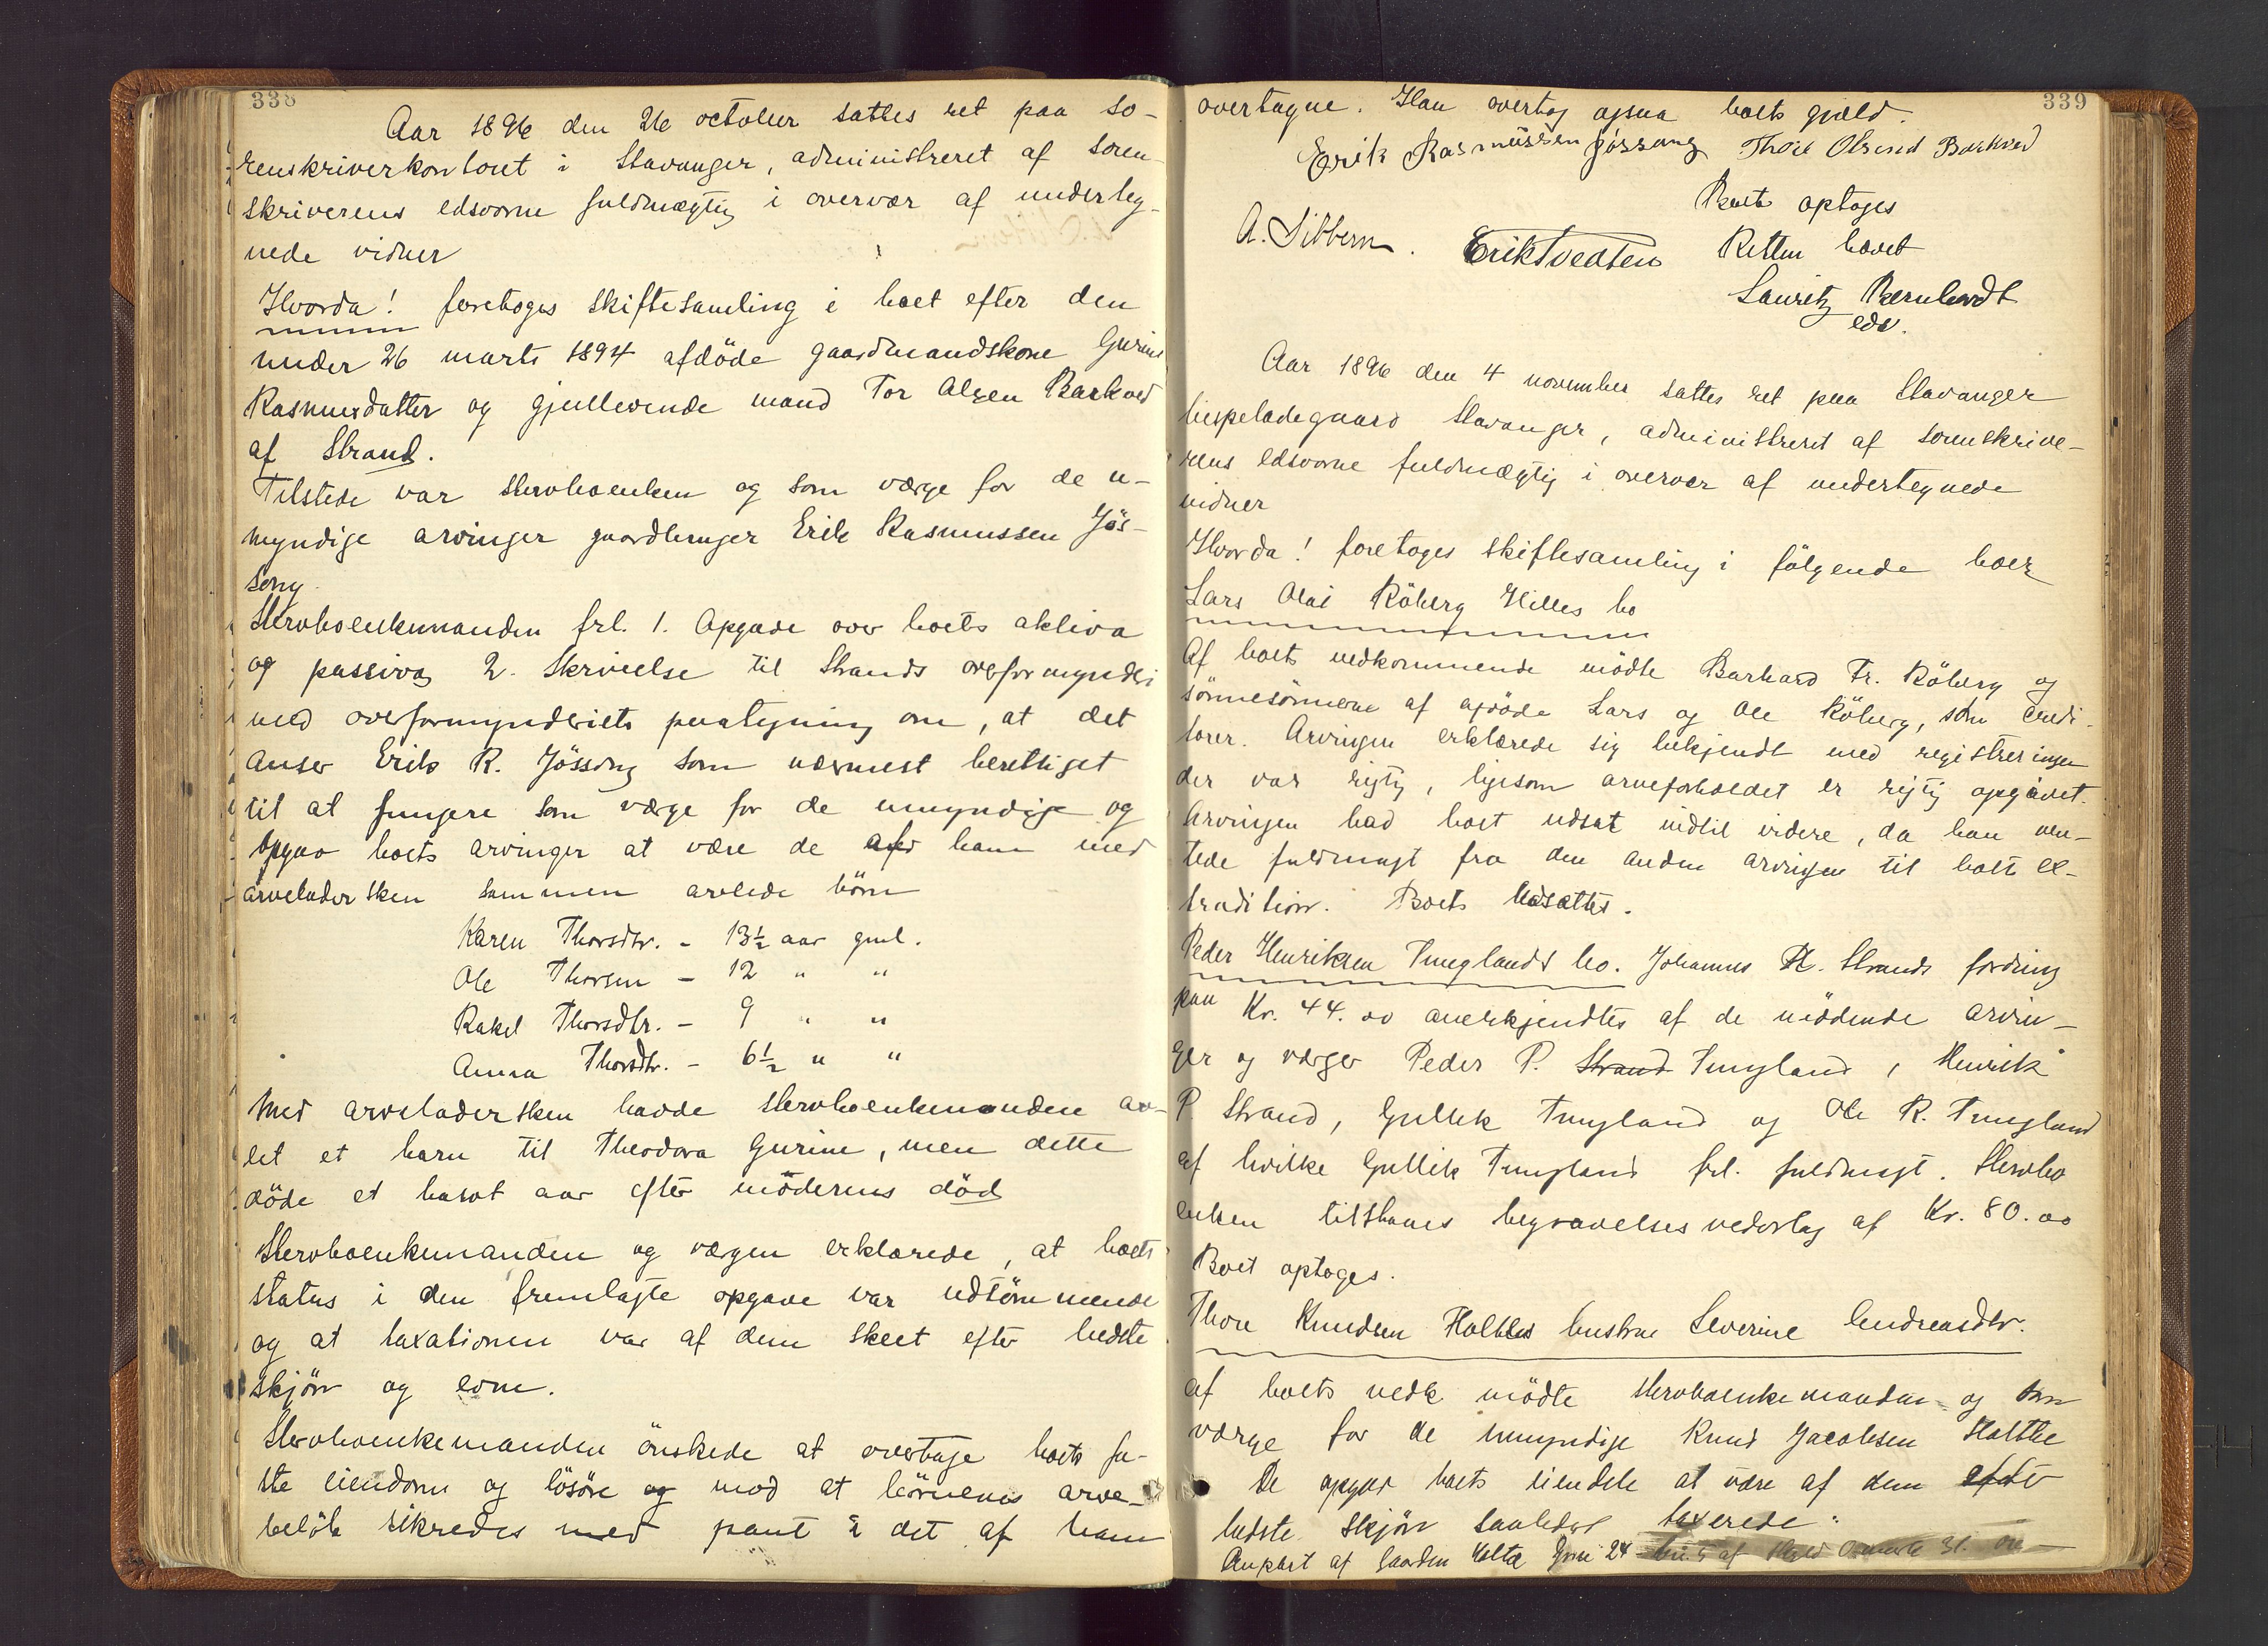 338
Aar 1896 den 26 october sattes ret paa so-
renskriverkontoret i Stavanger, administreret af soren-
skriverens edsvorne fuldmægtig i overvær af underteg-
nede vidner
Hvorda! foretoges skiftesamling i boet efter den
under 26 marts 1894 afdöde gaardmandskone Gurine
Rasmusdatter og gjenlevende mand Tor Olsen Barkved
af Strand.
Tilstede var stervboenken og som værge for de u-
myndige arvinger gaardbruger Erik Rasmussen Jös-
sang
Stervboenkemanden frl. 1. Opgave over boets aktiva
og passiva 2. Skrivelse til Strands overformynderi
med overformynderiets paategning om, at det
anser Erik R. Jössang som nærmest berettiget
til at fungere som værge for de umyndige og
opgav boets arvinger at være de af ham med
arveladersken sammen avlede börn
Karen Thorsdtr. - 13½ aar gml.
Ole Thorsen - 12 " "
Rakel Thorsdtr. - 9 " "
Anna Thorsdtr. - 6½ " "
Med arveladersken havde stervboenkemanden av-
let et barn til Theodora Gurine, men dette
döde et halvt aar efter möderens död
Stervboenkemanden og værgen erklærede, at boets
status i den fremlagte opgave var udtömmende
og at taxationen var af dem skeet efter bedste
skjön og evne.
Stervboenkemanden önskede at overtage boets fa-
ste eiendom og lösöre og mod at börnenes arve-
belöb sikredes med pant i det af ham
339
overtagne. Han overtog ogsaa boets gjæld.
Erik Rasmussen Jössang Thore Olsen Barkved
Boet optoges
A. Sibbern. Erik Tvedten Retten hævet
Lauritz Bernhardt
eds.
Aar 1896 den 4 november sattes ret paa Stavanger
bispeladegaard Stavanger, administreret af sorenskrive-
rens edsvorne fuldmægtig i overvær af undertegnede
vidner
Hvorda! foretoges skiftesamling i fölgende boer
Lars Olai Röberg Hilles bo
Af boets vedkommende mödte Barhard Fr. Röberg og
sönnesönnerne af afdöde Lars og Ole Röberg, som credi-
torer. Arvingen erklærede sig bekjendt med registreringen
der var rigtig, ligesom arveforholdet er rigtig opgivet.
Arvingen bad boet udsat indtil videre, da han ven-
tede fuldmagt fra den anden arvingen til boets ex-
tradition. Boet udsattes.
Peder Henriksen Tunglands bo. Johannes H. Strands fordring
paa Kr. 44.00 anerkjendtes af de mödende arvin-
ger og værger Peder P. Strand Tungland, Henrik
P Strand, Gullik Tungland og Ole R. Tungland
af hvilke Gullik Tungland frl. fuldmagt. Stervbo
enken tilstaaes begravelsesvederlag af Kr. 80.00
Boet optoges.
Thore Knudsen Holtes hustru Severine Andreasdtr.
af boets vedk mödte stervboenkemanden og som
værge for de umyndige Knud Jacobsen Holthe
De opgav boets eiendele at være af dem efter
bedste skjön saaledes taxerede:
Anpart af Gaarden Holta Gno 24 bn. 5 af skyld